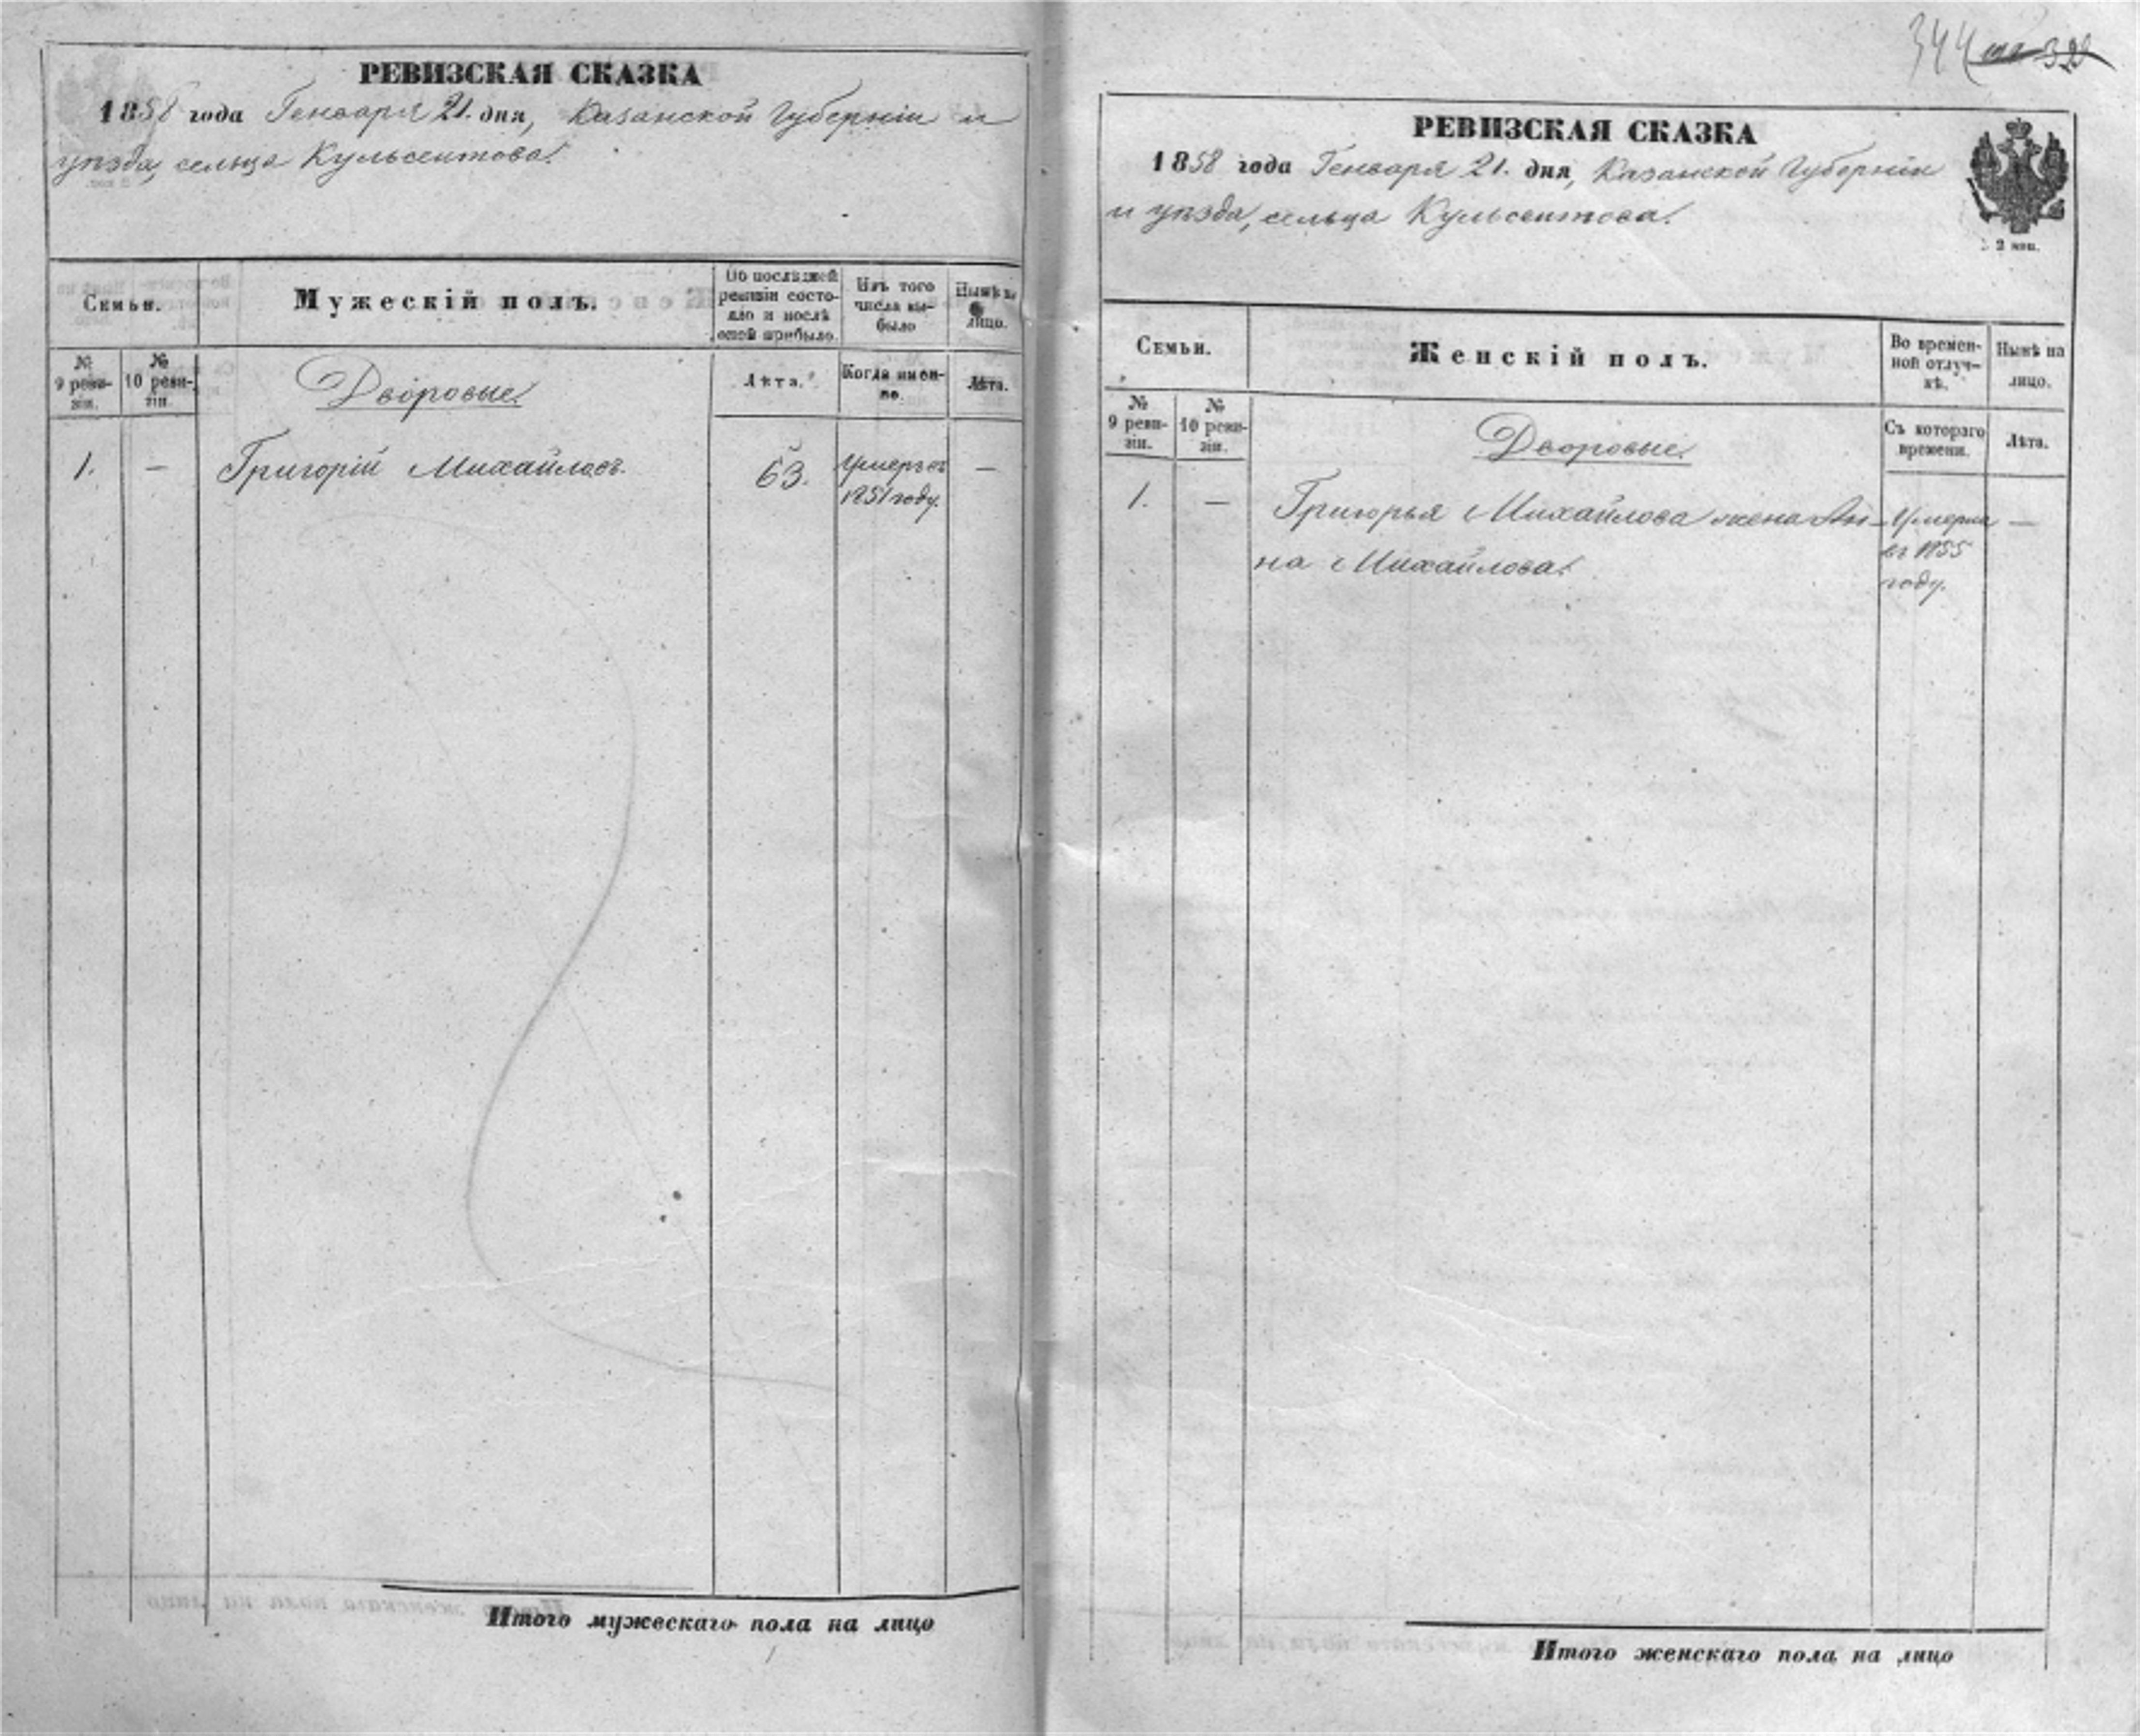 РЕВИЗСКАЯ СКАЗКА
1858 года Генваря 21. дня, Казанской Губерніи и
уѣзда, сельца Кульсеитова.
Семьи.
Мужескій полъ.
По послѣдней
ревизіи состо-
яло и послѣ
оной прибыло.
Изъ того
числа вы-
было
Нынѣ на
лицо.
№
9 реви-
зіи.
№
10 реви-
зіи.
Дворовые.
Лѣта.
Когда имен-
но.
Лѣта.
1. — Григорій Михайловъ. 63. Умеръ въ —
1851 году.
Итого мужескаго пола на лицо
344 328
РЕВИЗСКАЯ СКАЗКА
1858 года Генваря 21. дня, Казанской Губерніи
и уѣзда, сельца Кульсеитова.
2 коп.
Семьи.
Женскій полъ.
Во времен-
ной отлуч-
кѣ.
Нынѣ на
лицо.
№
9 реви-
зіи.
№
10 реви-
зіи.
Дворовые.
Съ котораго
времени.
Лѣта.
1. — Григорья Михайлова жена Ан- Умерла —
на Михайлова.
въ 1855
году.
Итого женскаго пола на лицо